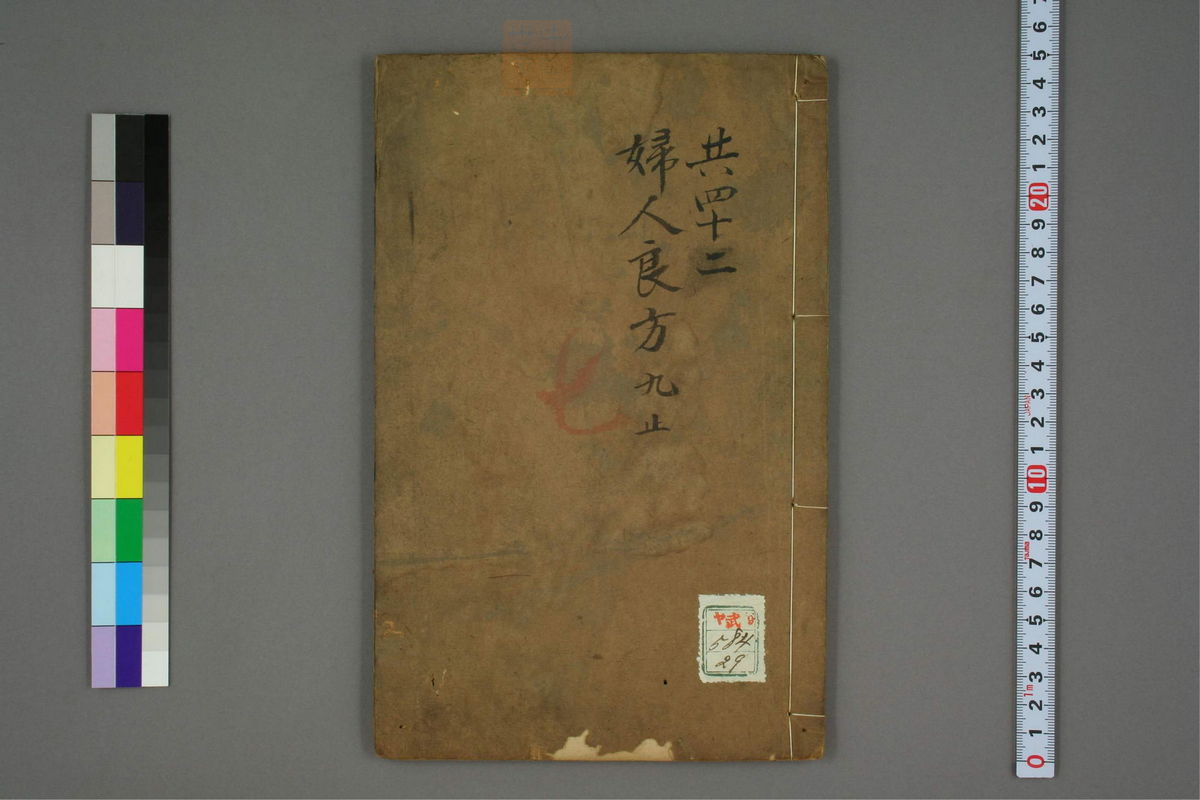 共四十二
婦人良方 九止
七
ヤ 武
584
29
6
5
4
3
2
1
20
9
8
7
6
5
4
3
2
1
10
9
8
7
6
5
4
3
2
1
0
JAPAN
1m